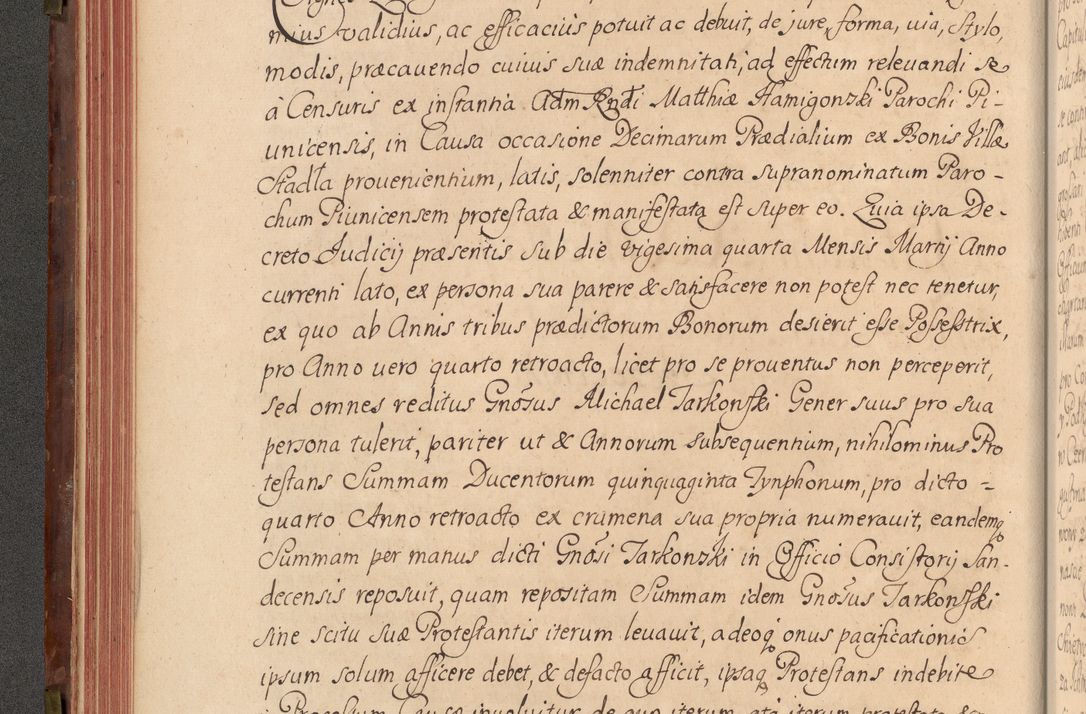 mius validius, ac efficacius potuit ac debuit, de jure, forma, via, Stylo,
modis, præcavendo cuivis suæ indemnitati, ad effectum relevandi se
à Censuris ex instantia Adm Rndi Matthiæ Hamigonzki Parochi Pi-
unicensis, in Causa occasione Decimarum Prædialium ex Bonis Villæ
Stadła provenientium, latis, solenniter contra supranominatum Paro-
chum Piunicensem protestata & manifestata est super eo. Quia ipsa De-
creto Judicij præsentis sub die vigesima quarta Mensis Martij Anno
currenti lato, ex persona sua parere & satisfacere non potest nec tenetur,
ex quo ab Annis tribus prædictorum Bonorum desierit esse Possesstrix,
pro Anno vero quarto retroacto, licet pro se proventus non perceperit,
sed omnes reditus Gnosus Michael Tarkonski Gener suus pro sua
persona tulerit, pariter ut & Annorum subsequentium, nihilominus Pro
testans Summam Ducentorum quinquaginta Tynphonum, pro dicto =
quarto Anno retroacto ex crumena sua propria numeravit, eandemq
Summam per manus dicti Gnosi Tarkonzki in Officio Consistorij San-
decensis reposuit, quam repositam Summam idem Gnosus Tarkonski
sine scitu suæ Protestantis iterum levavit, adeoq onus pacificationis
ipsum solum afficere debet, & defacto afficit, ipsaq Protestans indebite
Processum Causæ involvitur de quo iterum atq iterum protestata &